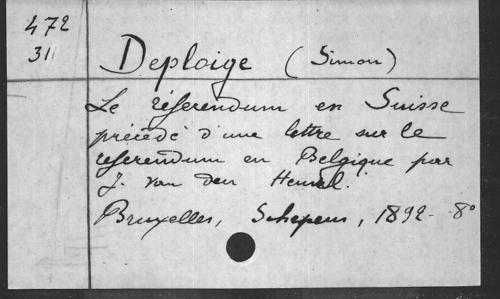 472
31
Deploige (Simon)
Le référendum en Suisse
précédé d'une lettre sur le
referendum en Belgique par
J. van den Heuvel.
Bruxelles, Schepens, 1892. 8°